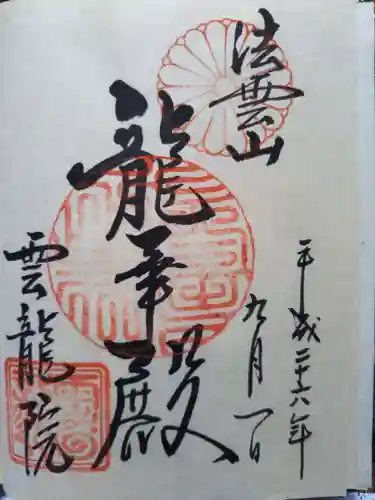 法雲山
平成二十六年
九月一日
龍華殿
雲龍院